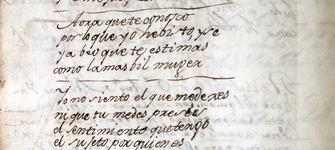 Aora que te conosco
por lo que yo he bisto, y se
ya beo que te estimas
como la mas bil muger
Yo no siento el que me dexes
ni que tu me des, pre seis
el sentimiento que tengo
el sujeto por quien es